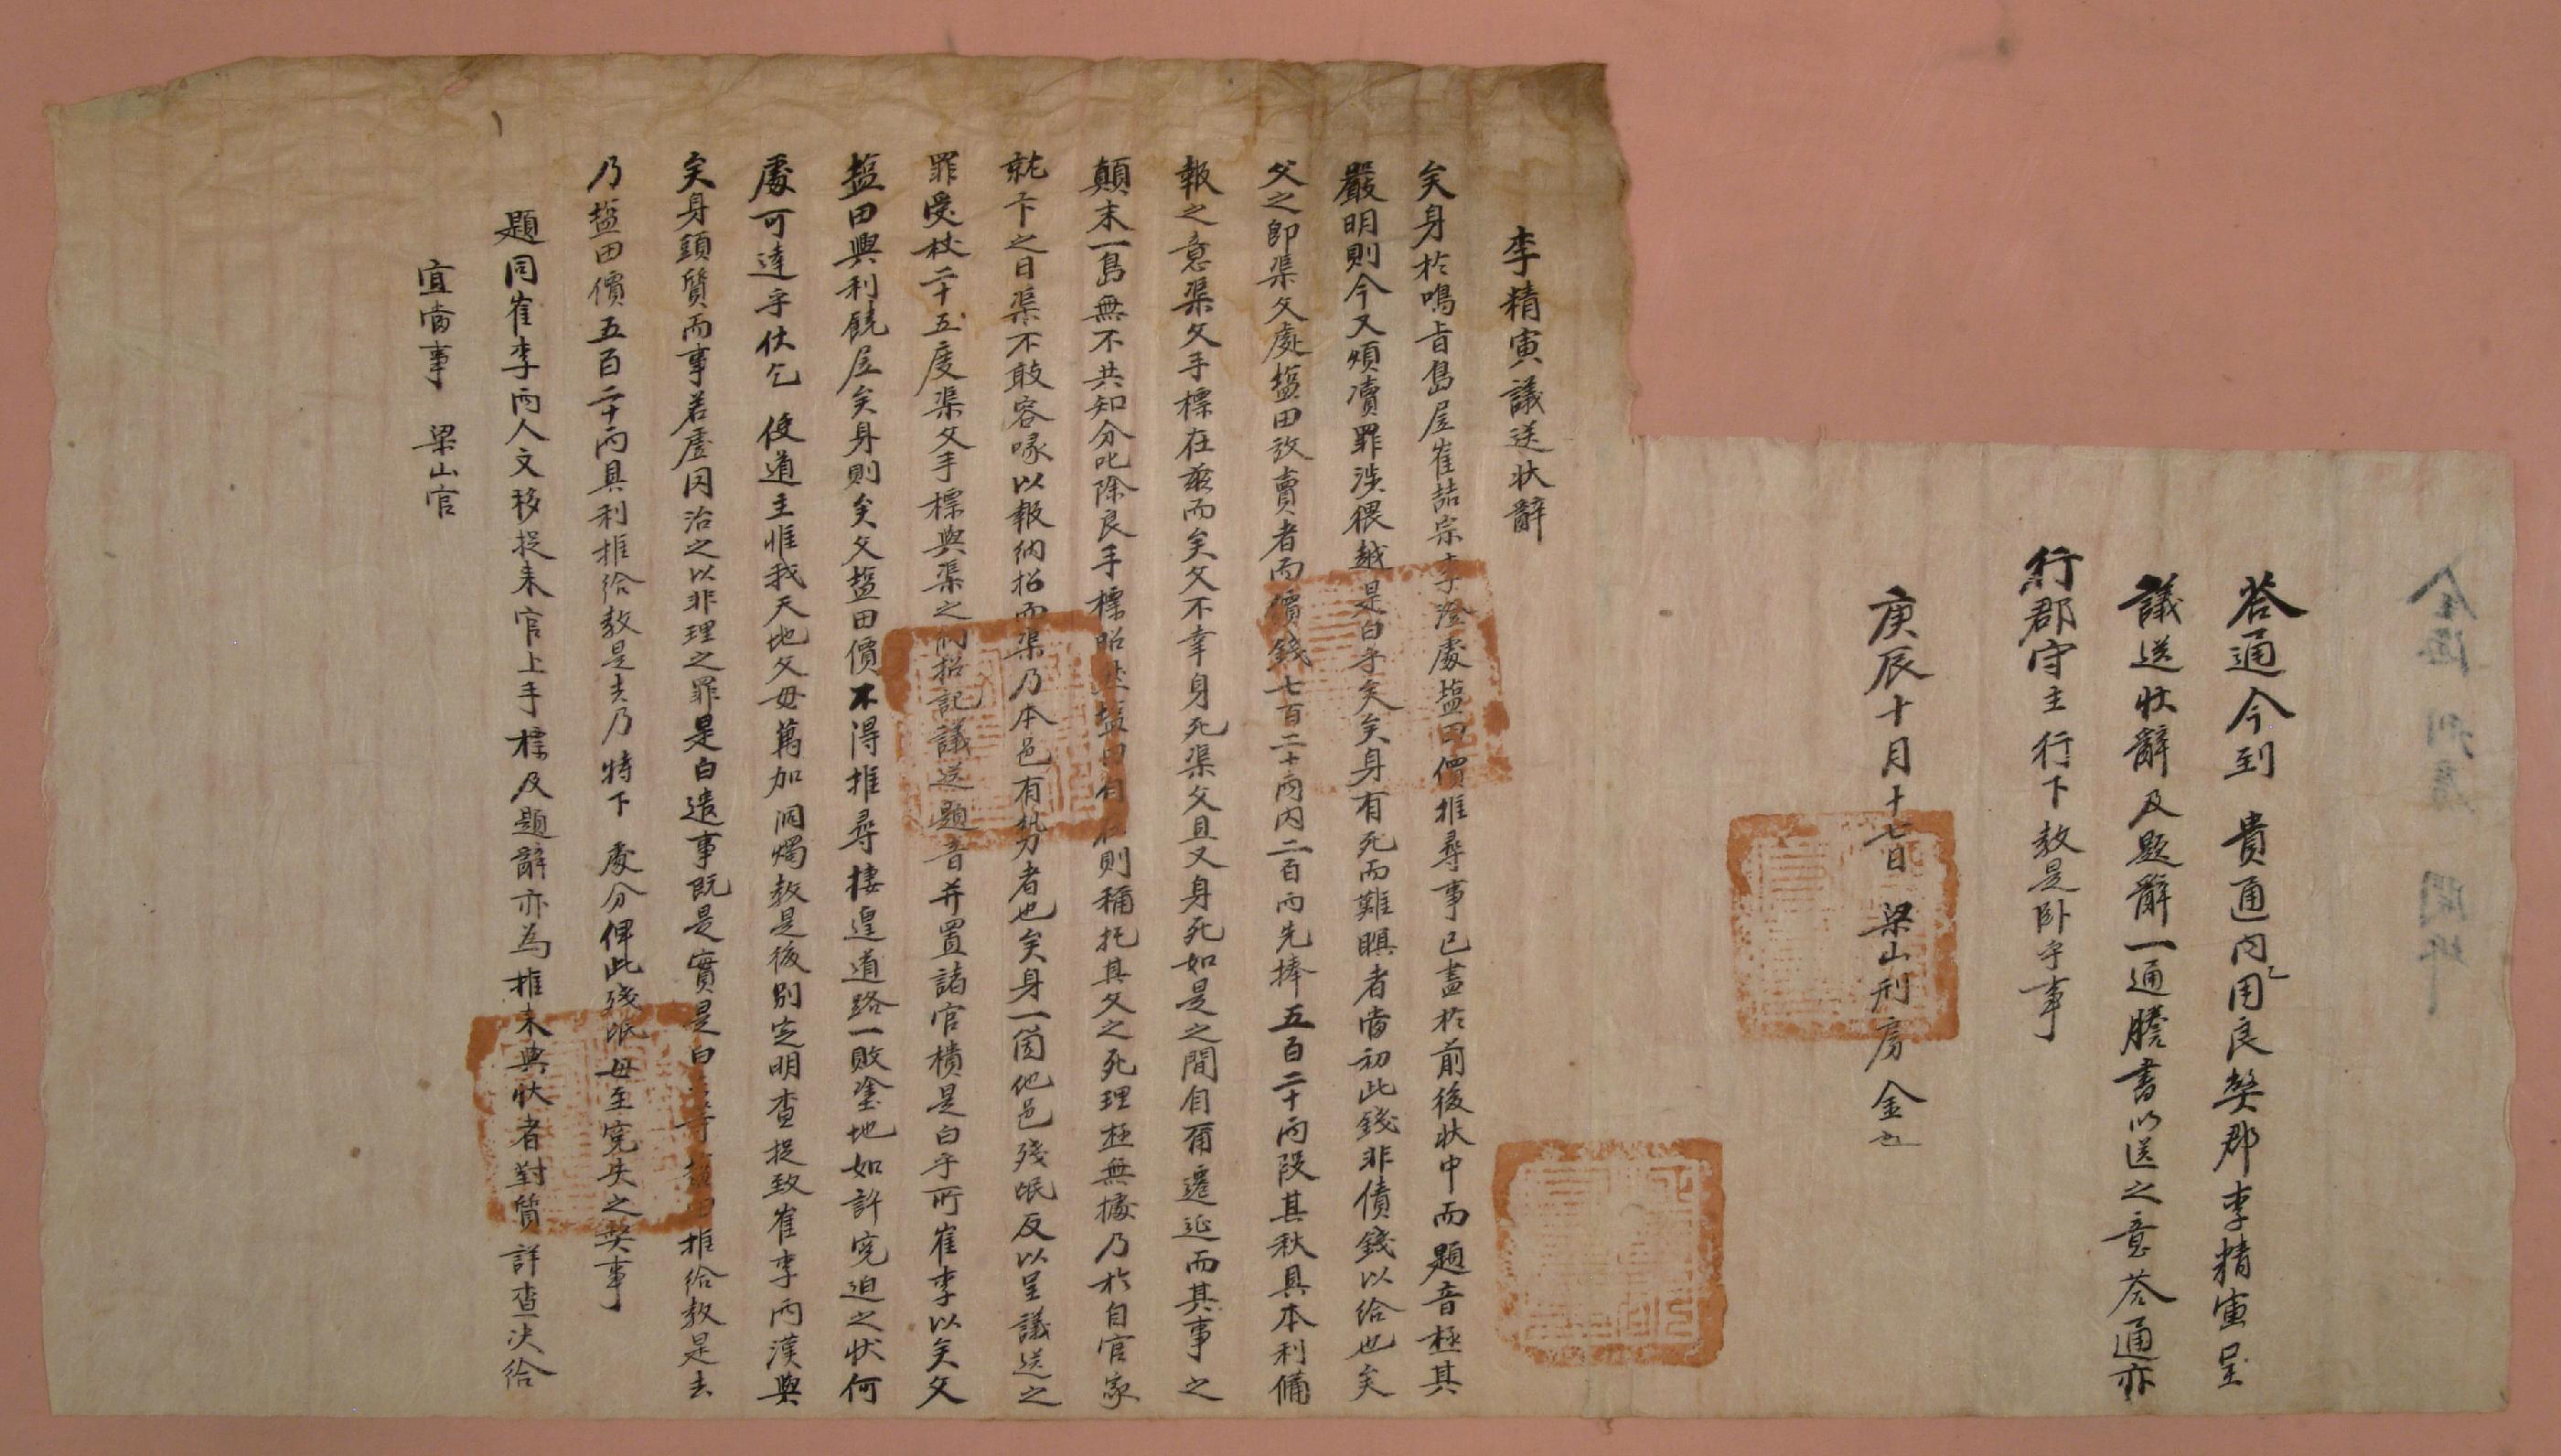 答通今到 貴通內用良獘郡李精寅呈
議送狀辭及題辭一通謄書以送之意答通亦
行郡守主 行下敎是卧乎事
庚辰十月十七日 梁山刑房金
李精寅議送狀辭
矣身於鳴旨島居崔喆宗李澄處塩田價推尋事已盡於前後狀中而 題音極其
嚴明則今又煩瀆罪涉猥越是白乎矣矣身有死而難瞑者當初此錢非債錢以給也矣
父之卽渠父處塩田放賣者而價錢七百二十兩內二百兩先捧五百二十兩段其秋具本利備
報之意渠父手標在玆而矣父不幸身死渠父且又身死如是之間自爾遷延而其事之
顚末一島無不共知分叱除良手標昭然塩田自在則稱托其父之死理極無據乃於自官家
就卞之日渠不敢容喙以報納招而渠乃本邑有勢者也矣身一箇他邑殘氓反以呈議送之
罪受杖二十五度渠父手標與渠之侤招記議送題音幷置諸官樻是白乎所崔李以矣父
塩田興利饒居矣身則矣父塩田價不得推尋捿遑道路一敗塗地如許寃迫之狀何
處可達乎伏乞 使道主惟我天地父母萬加洞燭敎是後別定明查捉致崔李兩漢與
矣身頭質而事若虛罔治之以非理之罪是白遣事旣是實是白 塩田推給敎是去
乃塩田價五百二十兩具利推給敎是去乃 特下 處分俾此殘氓毋至寃失之獘事
題同崔李兩人文移捉來官上手標及題辭亦爲推來與狀者對質 詳查決給
宜當事 梁山官
金海 刑房 開坼